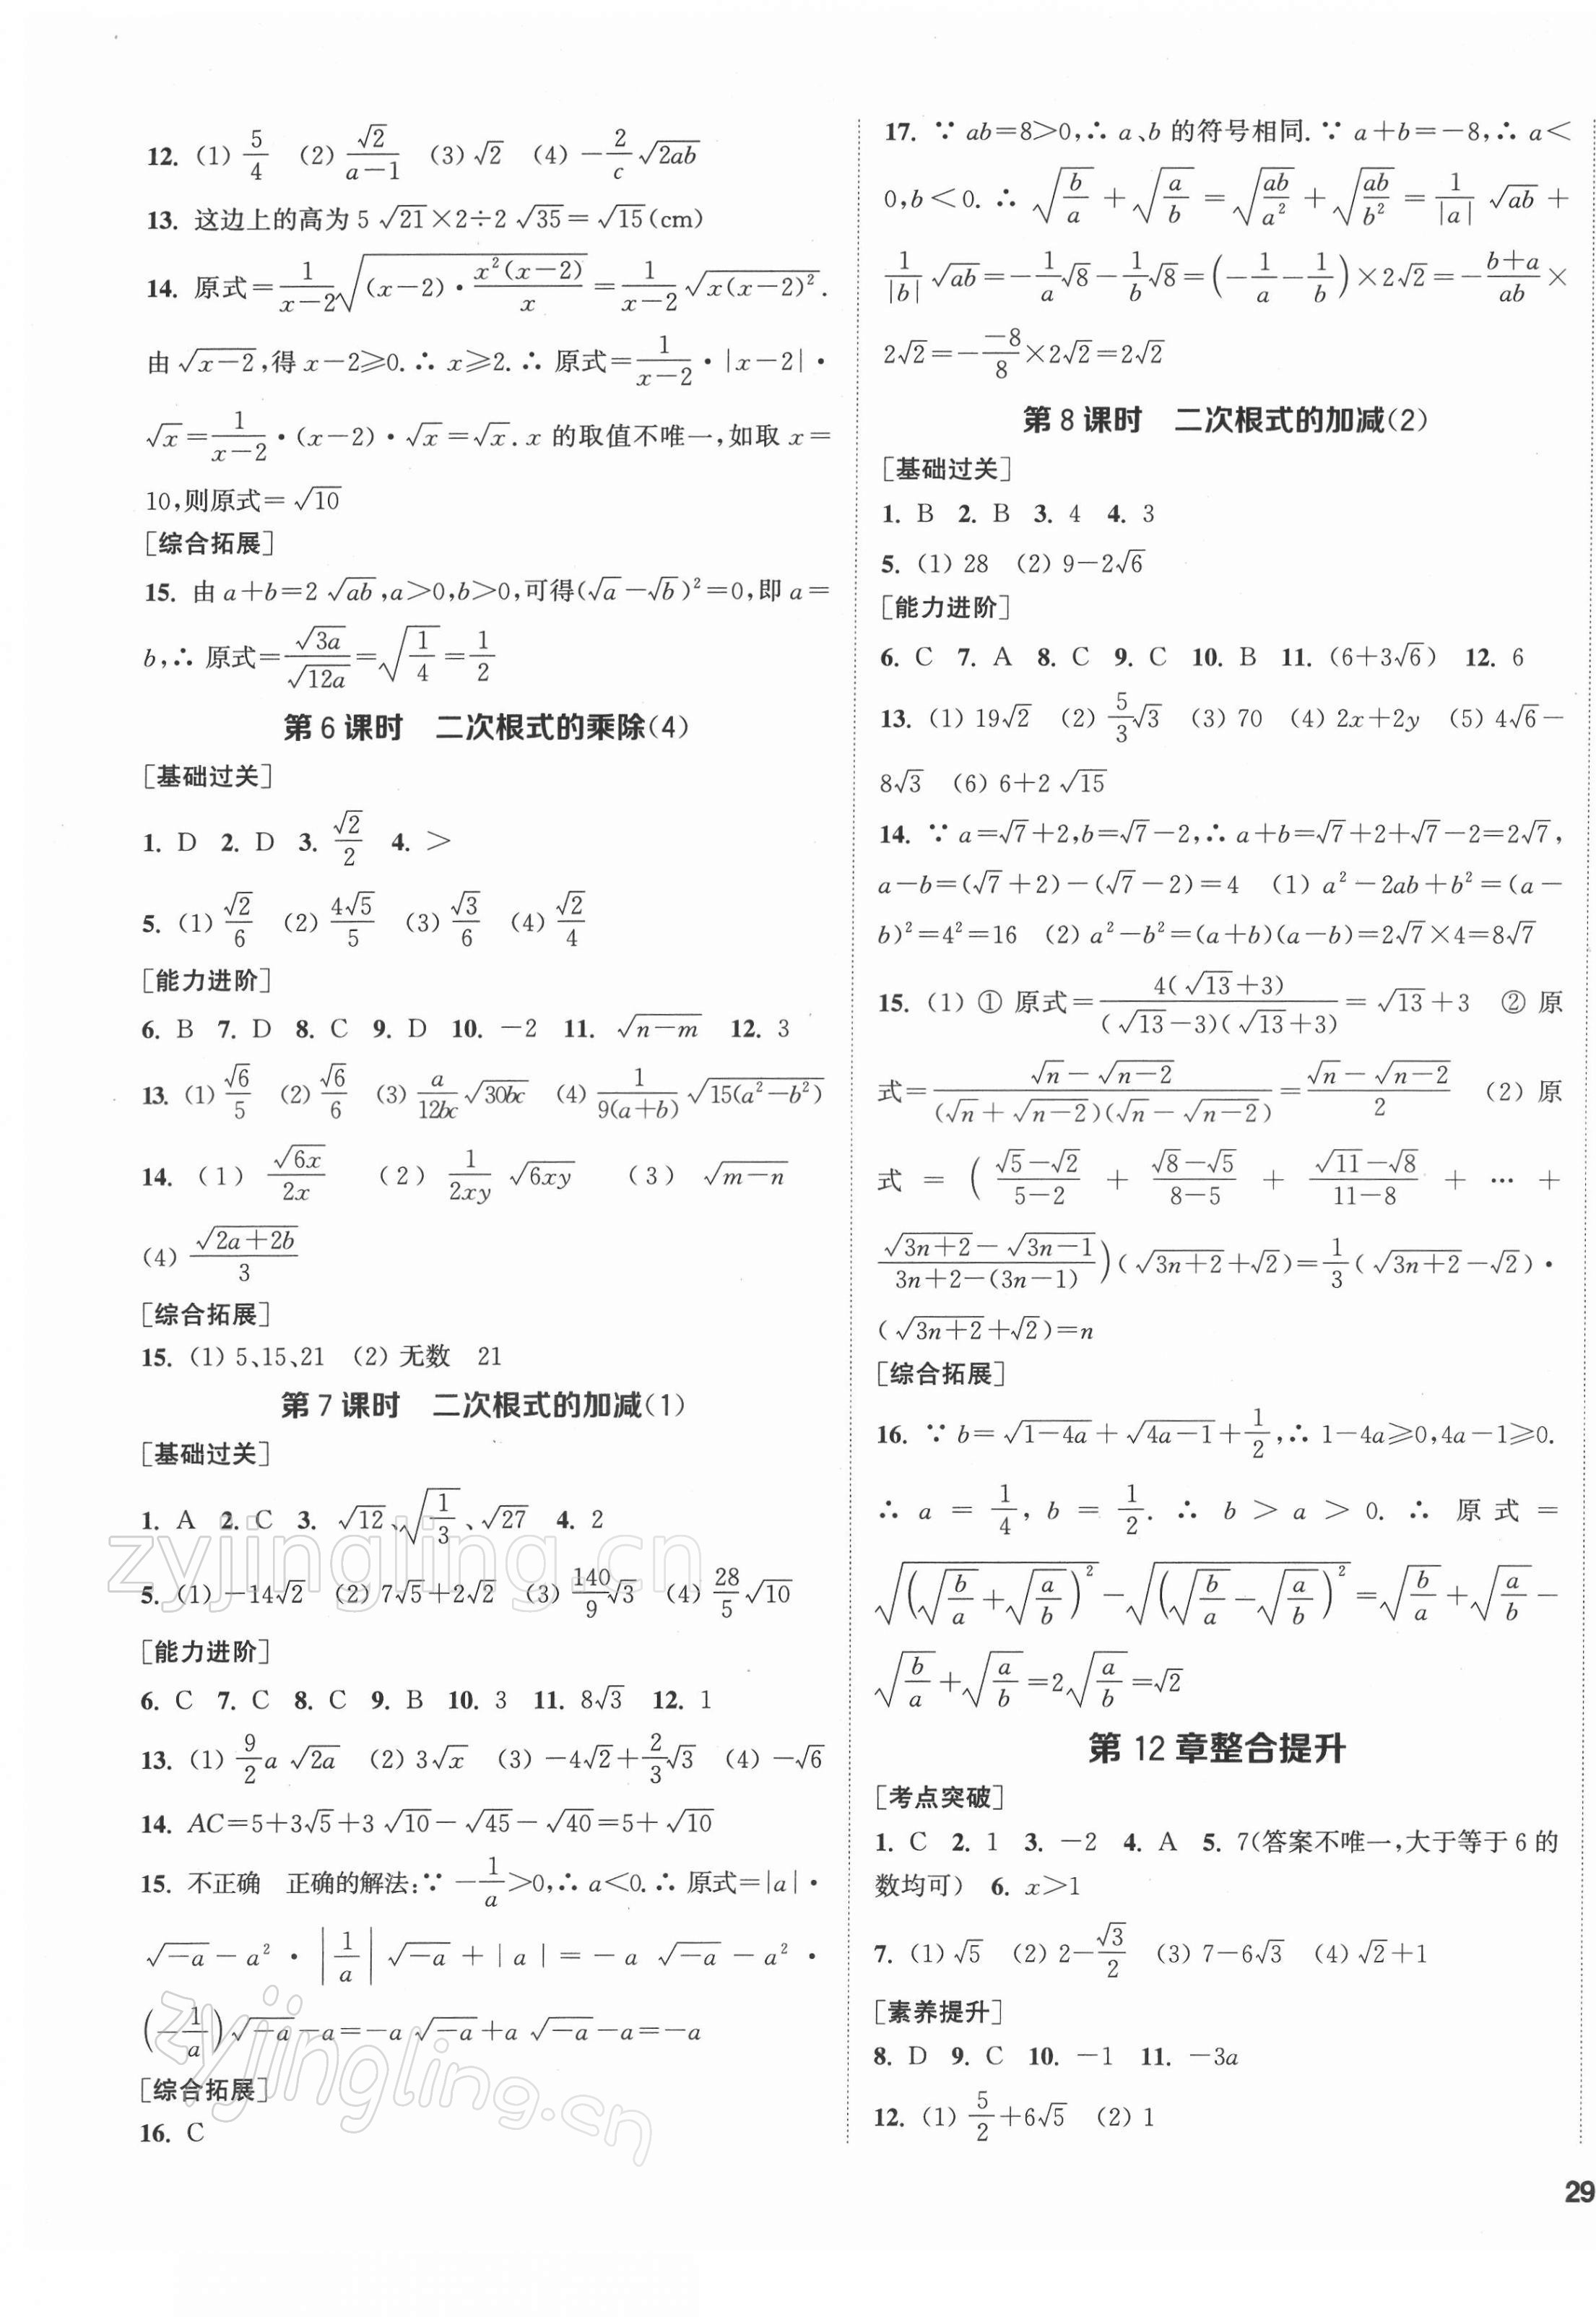 12. (1) 5/4 (2) √2/(a−1) (3) √2 (4) −(2/c)√(2ab)
13. 这边上的高为 5√21×2÷2√35=√15(cm)
14. 原式=1/(x−2) √((x−2)·x²(x−2)/x)=1/(x−2) √(x(x−2)²).
由√(x−2),得 x−2≥0.∴ x≥2.∴ 原式=1/(x−2)·|x−2|·
√x=1/(x−2)·(x−2)·√x=√x. x 的取值不唯一,如取 x=
10,则原式=√10
[综合拓展]
15. 由 a+b=2√(ab),a>0,b>0,可得(√a−√b)²=0,即 a=
b,∴ 原式=√(3a)/√(12a)=√(1/4)=1/2
第 6 课时 二次根式的乘除(4)
[基础过关]
1. D 2. D 3. √2/2 4. >
5. (1) √2/6 (2) 4√5/5 (3) √3/6 (4) √2/4
[能力进阶]
6. B 7. D 8. C 9. D 10. −2 11. √(n−m) 12. 3
13. (1) √6/5 (2) √6/6 (3) a/(12bc) √(30bc) (4) 1/(9(a+b)) √(15(a²−b²))
14. (1) √(6x)/(2x) (2) 1/(2xy) √(6xy) (3) √(m−n)
(4) √(2a+2b)/3
[综合拓展]
15. (1) 5、15、21 (2) 无数 21
第 7 课时 二次根式的加减(1)
[基础过关]
1. A 2. C 3. √12、√(1/3)、√27 4. 2
5. (1) −14√2 (2) 7√5+2√2 (3) (140/9)√3 (4) (28/5)√10
[能力进阶]
6. C 7. C 8. C 9. B 10. 3 11. 8√3 12. 1
13. (1) (9/2)a√(2a) (2) 3√x (3) −4√2+(2/3)√3 (4) −√6
14. AC=5+3√5+3√10−√45−√40=5+√10
15. 不正确 正确的解法:∵ −1/a>0,∴ a<0.∴ 原式=|a|·
√(−a)−a²·|1/a|√(−a)+|a|=−a√(−a)−a²·
(−1/a)√(−a)−a=−a√(−a)+a√(−a)−a=−a
[综合拓展]
16. C
17. ∵ ab=8>0,∴ a、b 的符号相同.∵ a+b=−8,∴ a<
0,b<0.∴ √(b/a)+√(a/b)=√(ab/a²)+√(ab/b²)=(1/|a|)√(ab)+
(1/|b|)√(ab)=−(1/a)√8−(1/b)√8=(−1/a−1/b)×2√2=−(b+a)/(ab)×
2√2=−(−8/8)×2√2=2√2
第 8 课时 二次根式的加减(2)
[基础过关]
1. B 2. B 3. 4 4. 3
5. (1) 28 (2) 9−2√6
[能力进阶]
6. C 7. A 8. C 9. C 10. B 11. (6+3√6) 12. 6
13. (1) 19√2 (2) (5/3)√3 (3) 70 (4) 2x+2y (5) 4√6−
8√3 (6) 6+2√15
14. ∵ a=√7+2,b=√7−2,∴ a+b=√7+2+√7−2=2√7,
a−b=(√7+2)−(√7−2)=4 (1) a²−2ab+b²=(a−
b)²=4²=16 (2) a²−b²=(a+b)(a−b)=2√7×4=8√7
15. (1) ① 原式=4(√13+3)/((√13−3)(√13+3))=√13+3 ② 原
式=(√n−√(n−2))/((√n+√(n−2))(√n−√(n−2)))=(√n−√(n−2))/2 (2) 原
式=((√5−√2)/(5−2)+(√8−√5)/(8−5)+(√11−√8)/(11−8)+…+
(√(3n+2)−√(3n−1))/(3n+2−(3n−1)))(√(3n+2)+√2)=(1/3)(√(3n+2)−√2)·
(√(3n+2)+√2)=n
[综合拓展]
16. ∵ b=√(1−4a)+√(4a−1)+1/2,∴ 1−4a≥0,4a−1≥0.
∴ a=1/4, b=1/2. ∴ b>a>0. ∴ 原式=
√((√(b/a)+√(a/b))²)−√((√(b/a)−√(a/b))²)=√(b/a)+√(a/b)−
√(b/a)+√(a/b)=2√(a/b)=√2
第 12 章整合提升
[考点突破]
1. C 2. 1 3. −2 4. A 5. 7(答案不唯一,大于等于 6 的
数均可) 6. x>1
7. (1) √5 (2) 2−√3/2 (3) 7−6√3 (4) √2+1
[素养提升]
8. D 9. C 10. −1 11. −3a
12. (1) 5/2+6√5 (2) 1
29
zyjingling.cn
zyjingling.cn